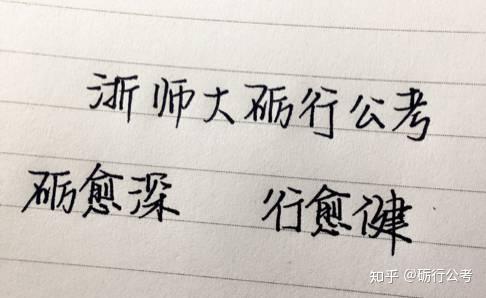 浙师大砺行公考
砺愈深 行愈健
知乎 @砺行公考